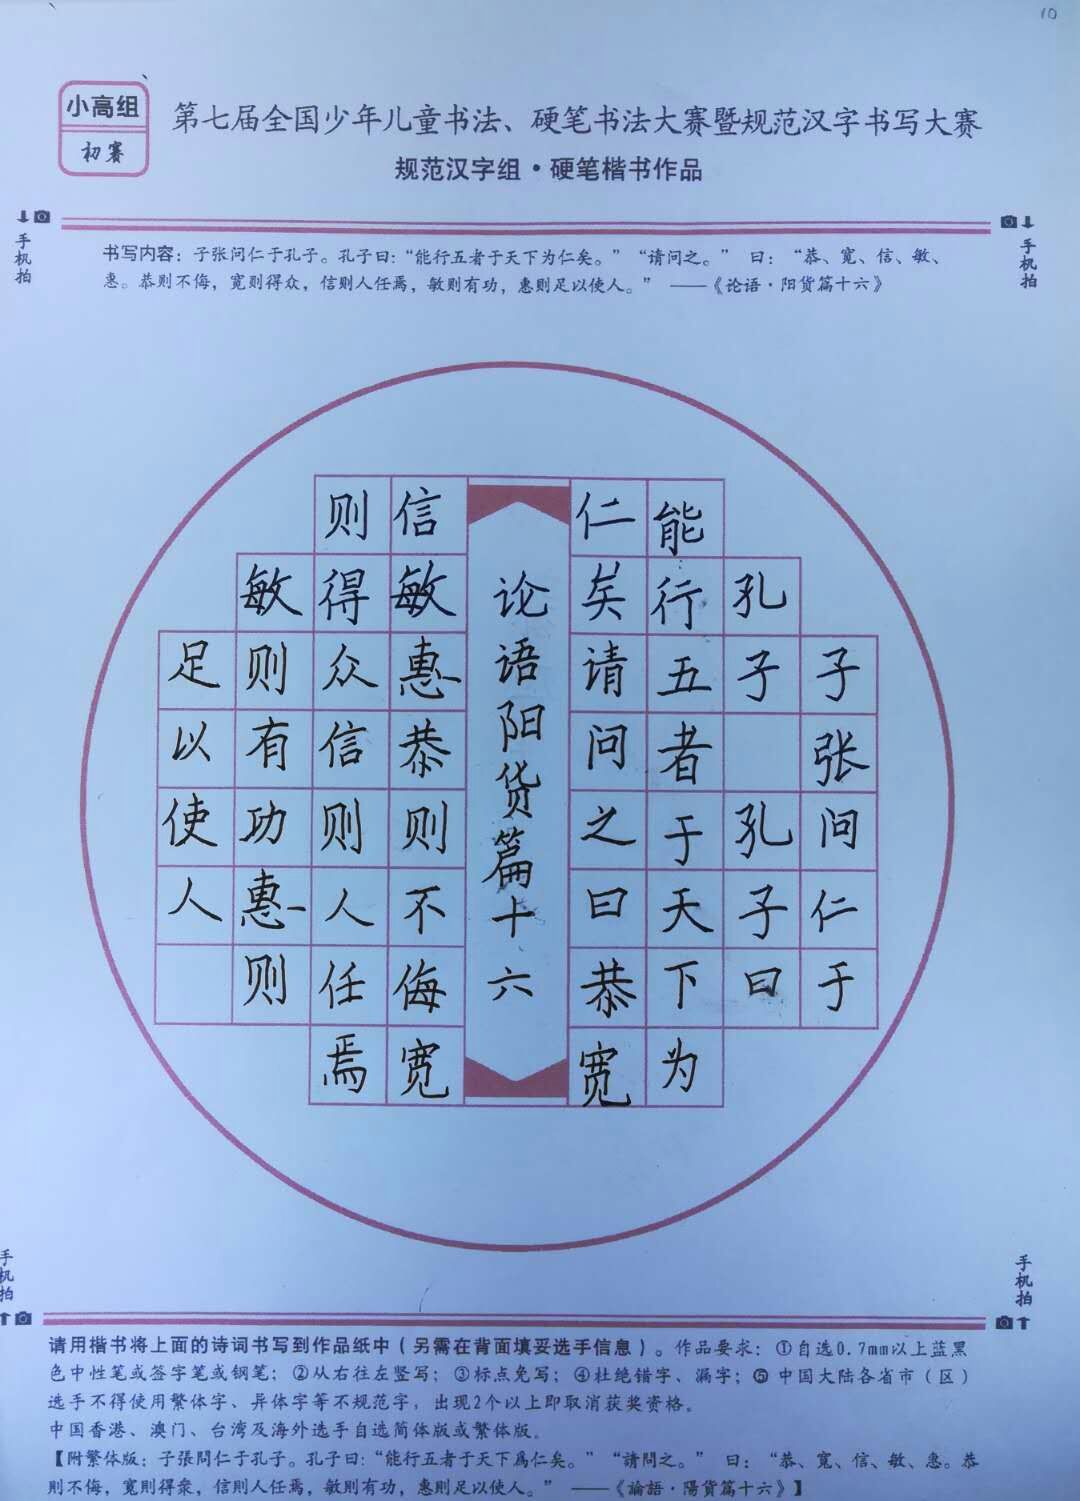 10
小高组
初赛
第七届全国少年儿童书法、硬笔书法大赛暨规范汉字书写大赛
规范汉字组·硬笔楷书作品
手机拍
手机拍
书写内容：子张问仁于孔子。孔子曰：“能行五者于天下为仁矣。”“请问之。” 曰：“恭、宽、信、敏、
惠。恭则不侮，宽则得众，信则人任焉，敏则有功，惠则足以使人。” ——《论语·阳货篇十六》
子张问仁于
孔子 孔子曰
能行五者于天下为
仁矣请问之曰恭宽
论语阳货篇十六
信敏惠恭则不侮宽
则得众信则人任焉
敏则有功惠则
足以使人
手机拍
手机拍
请用楷书将上面的诗词书写到作品纸中（另需在背面填妥选手信息）。作品要求：①自选0.7mm以上蓝黑
色中性笔或签字笔或钢笔；②从右往左竖写；③标点免写；④杜绝错字、漏字；⑤中国大陆各省市（区）
选手不得使用繁体字、异体字等不规范字，出现2个以上即取消获奖资格。
中国香港、澳门、台湾及海外选手自选简体版或繁体版。
【附繁体版：子張問仁于孔子。孔子曰：“能行五者于天下爲仁矣。”“請問之。” 曰：“恭、寬、信、敏、惠。恭
則不侮，寬則得衆，信則人任焉，敏則有功，惠則足以使人。” ——《論語·陽貨篇十六》】